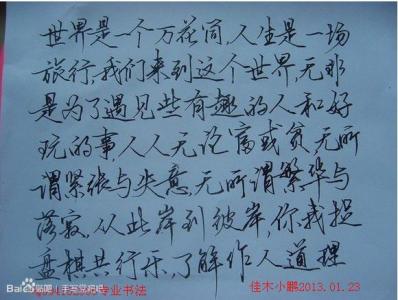 世界是一个万花筒,人生是一场
旅行,我们来到这个世界,无非
是为了遇见些有趣的人和好
玩的事,人人无论富或贫,无所
谓紧张与失意,无所谓繁华与
落寂,从此岸到彼岸,你我捉
盘棋共行乐,了解作人道理
专业书法
佳木小鹏2013.01.23
Bai百科